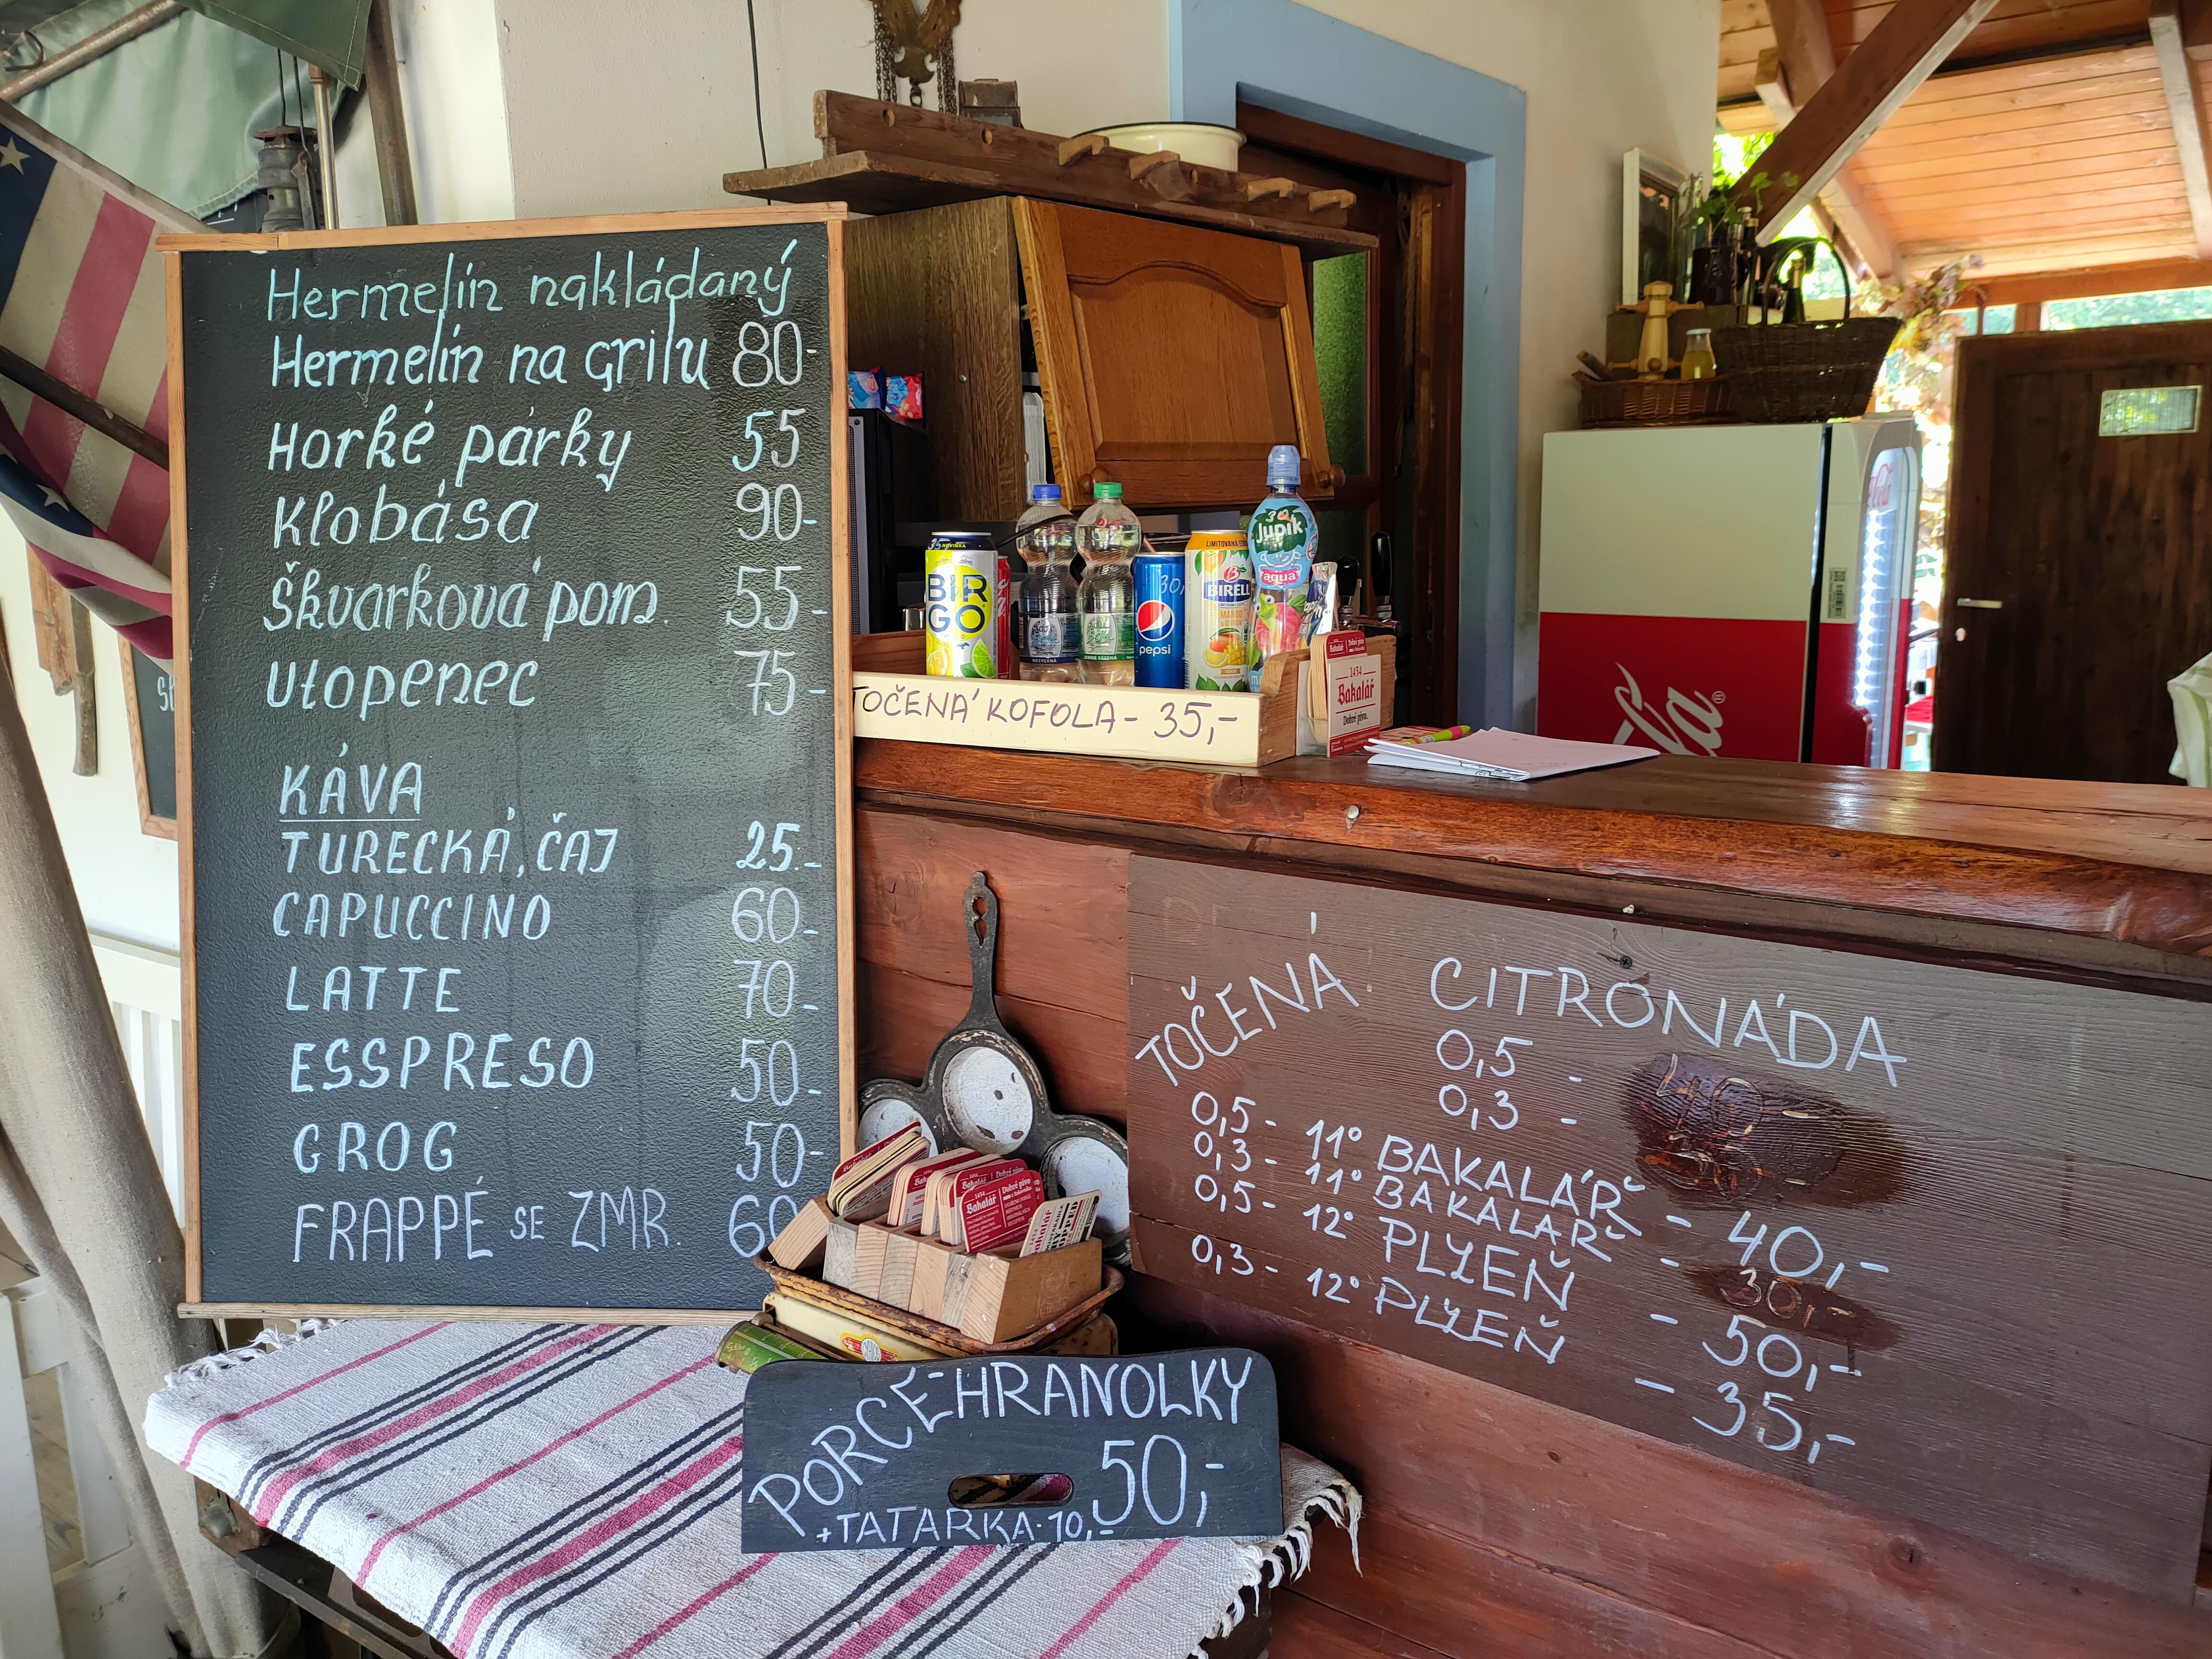 Hermelín nakládaný
Hermelín na grilu 80-
Horké párky 55
Klobása 90-
Škvarková pom. 55-
Utopenec 75-
KÁVA
TURECKÁ, ČAJ 25.-
CAPUCCINO 60-
LATTE 70-
ESSPRESO 50-
GROG 50-
FRAPPÉ SE ZMR. 60
BIRGO
30,
pepsi
LIMITOVANÁ
BIRELL
MANGO
30
Jupík
aqua
TOČENÁ KOFOLA - 35,-
1454
Bakalář
Dobré pivo.
Cola
TOČENÁ CITRONÁDA
0,5 - 40
0,3 -
0,5 - 11° BAKALÁŘ - 40,-
0,3 - 11° BAKALAŘ - 30,-
0,5 - 12° PLZEŇ - 50,-
0,3 - 12° PLZEŇ - 35,-
Bakalář
Dobré pivo
PORCE HRANOLKY
50,-
+TATARKA-10,-